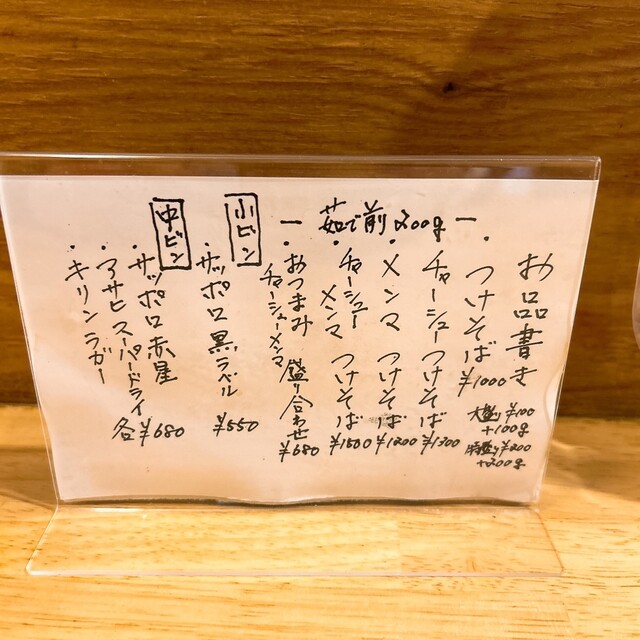 お品書き
ー 茹で前200g ー
・つけそば ¥1000
大盛り¥100
+100g
特盛り¥200
+200g
・チャーシューつけそば ¥1300
・メンマつけそば ¥1200
・チャーシューメンマつけそば ¥1500
・おつまみチャーシューメンマ盛り合わせ ¥680
小ビン
・サッポロ黒ラベル ¥550
中ビン
・サッポロ赤星
・アサヒスーパードライ 各¥680
・キリンラガー